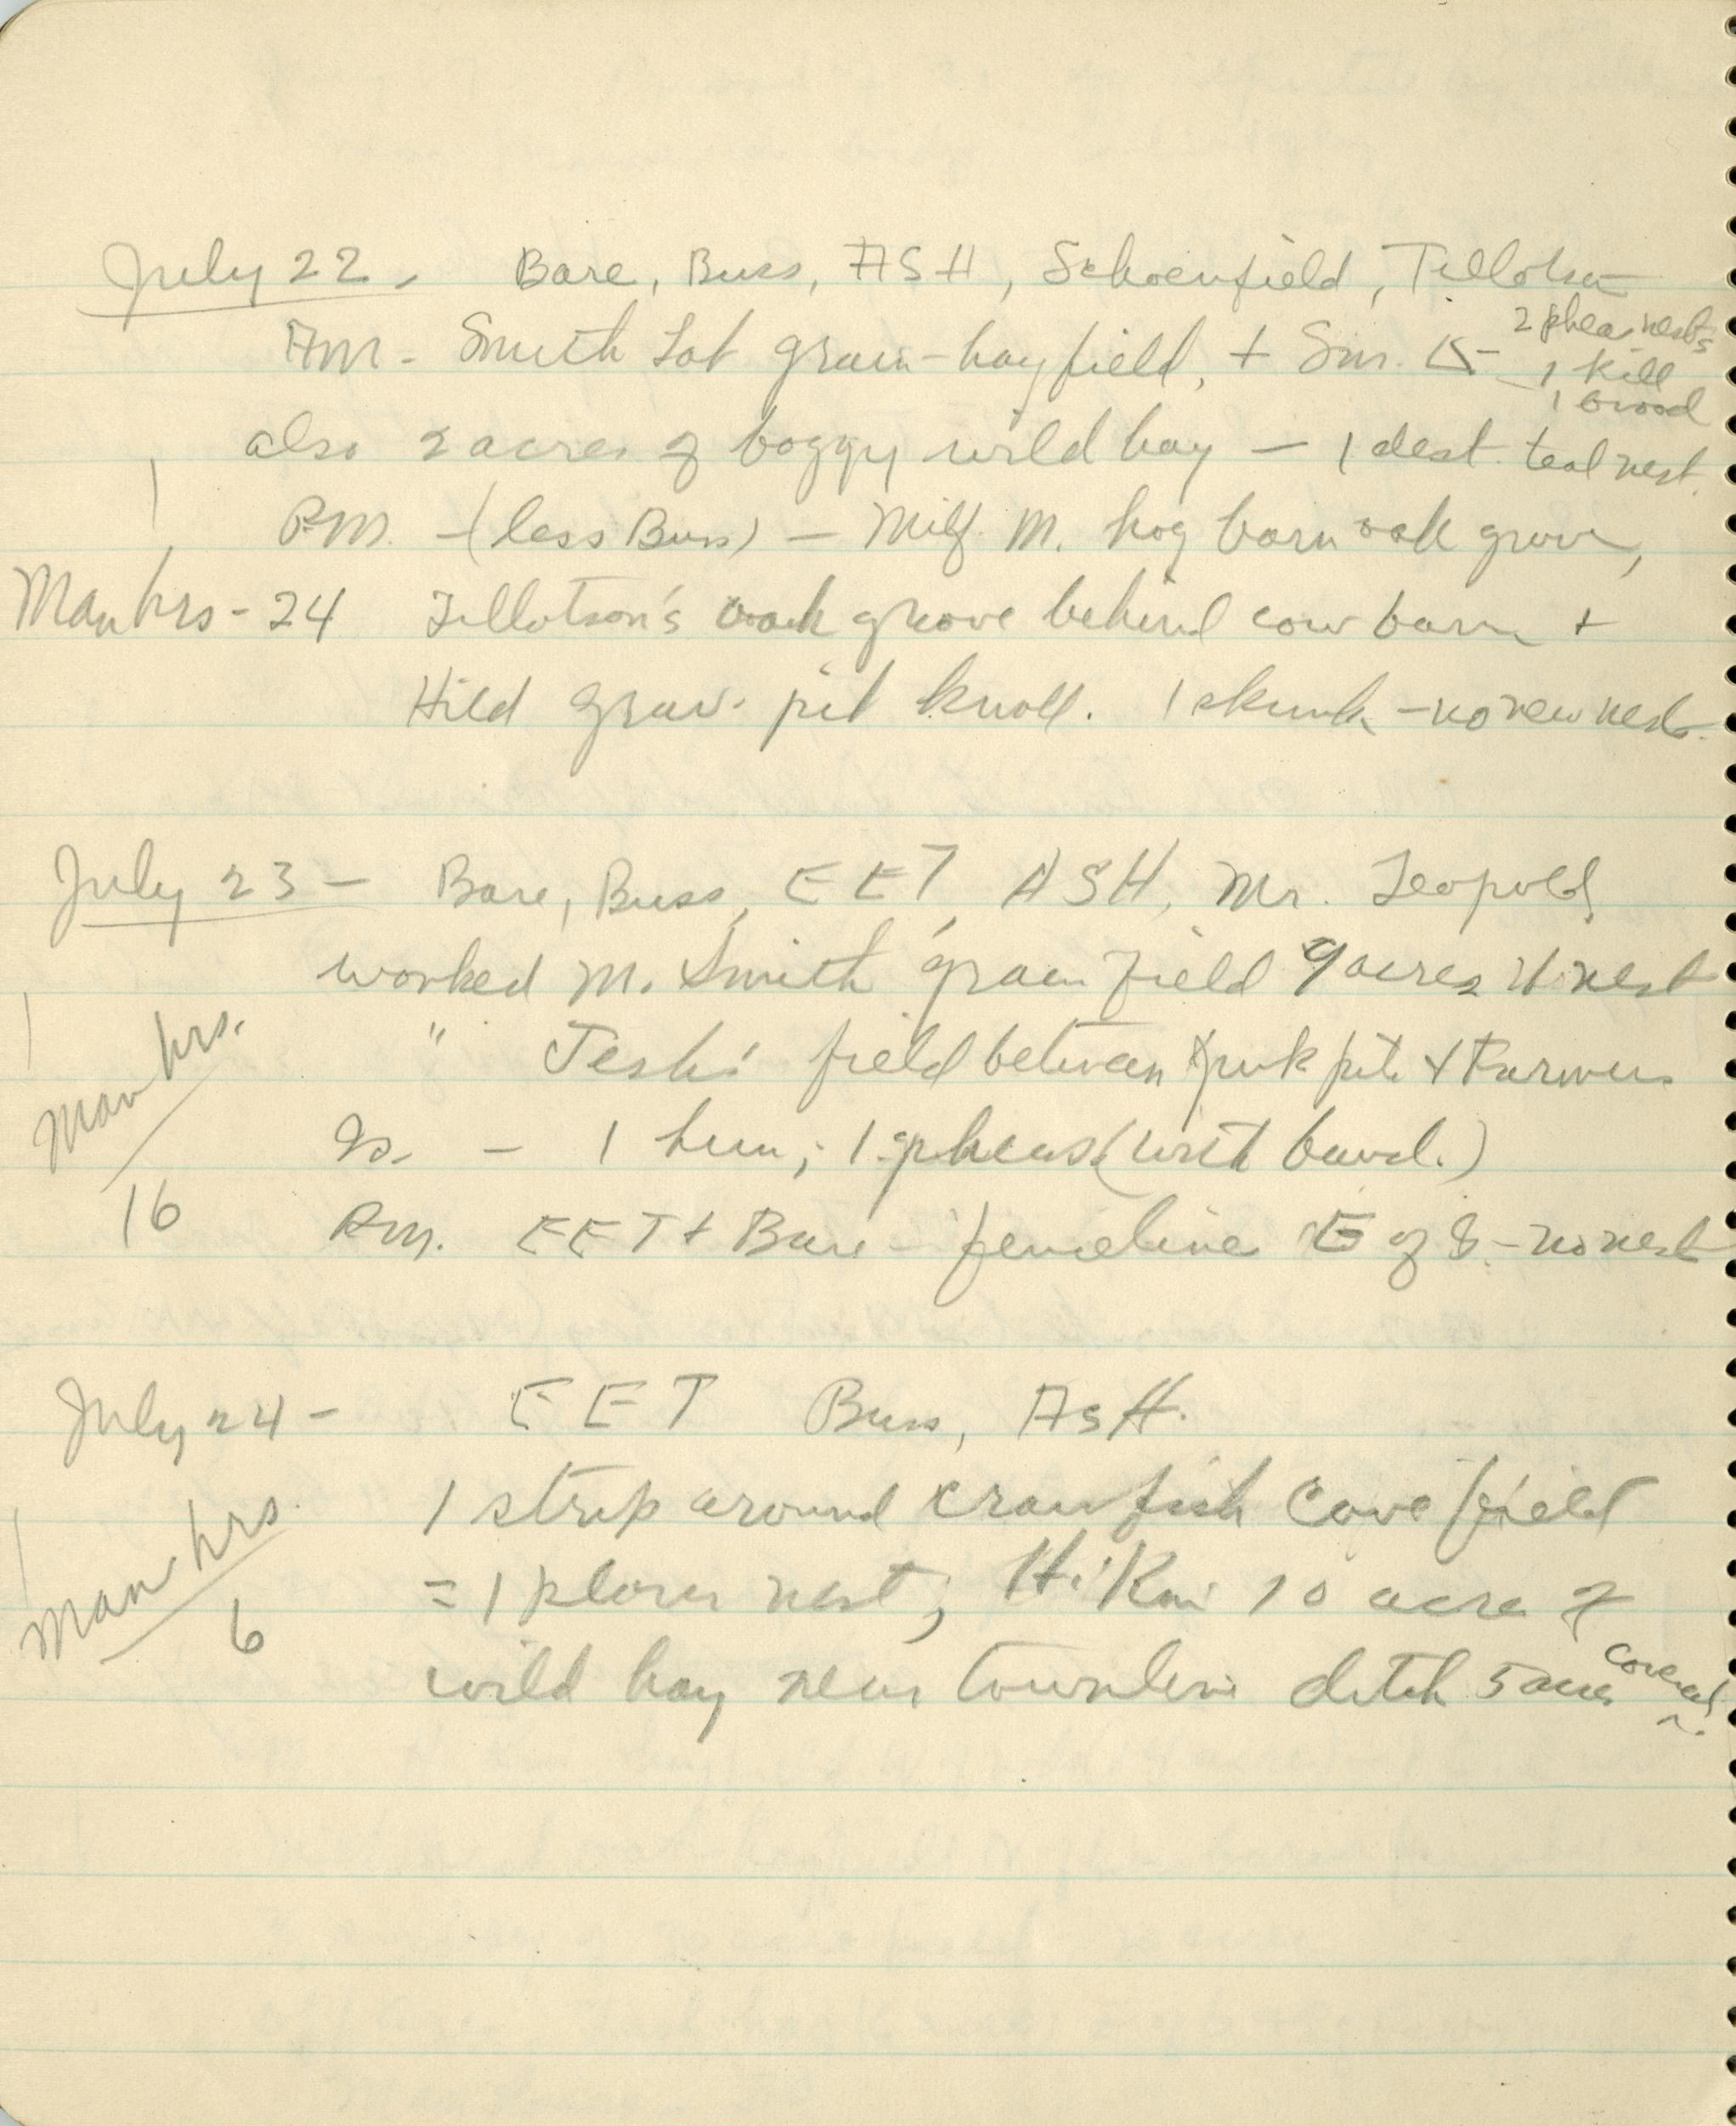 July 22. Bare, Buss, ASH, Schoenfield, Tillotson
2 pheas nests
AM - Smith Lot grain-hayfield, + Sm.
1 kill
1 brood
also 2 acres of boggy wild hay - 1 dest. teal nest.
P.M. - (less Buss) - Milf. M. hog barn oak grove,
Man hrs - 24 Tillotson's oak grove behind cow barn +
Hild grav. pit knoll. 1 skunk - no new nests.
July 23 - Bare, Buss, EET, ASH, Mr. Leopold
worked M. Smith grain field 9 acres nest
" field between pit +
Man hrs.
Is. - 1 hun; 1 pheas (with band.)
16
P.M. EET + Bare - fenceline E of 8. - no nest
July 24 - EET Buss, ASH.
1 strip around crawfish Cove field
Man hrs.
= 1 plover nest; 10 acre of
6
wild hay near townline ditch 5 acres covered